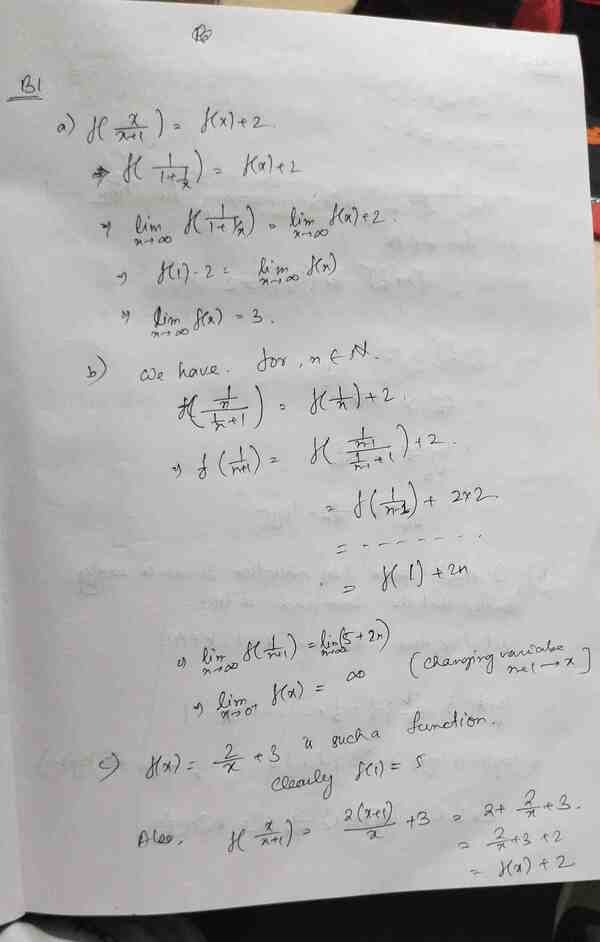 B1
a) f(x/(x+1)) = f(x)+2.
⇒ f(1/(1+1/x)) = f(x)+2
⇒ lim x→∞ f(1/(1+1/x)) = lim x→∞ f(x)+2.
⇒ f(1)-2 = lim x→∞ f(x)
⇒ lim x→∞ f(x) = 3.
b) We have. for, n ∈ N.
f((1/n)/(1/n+1)) = f(1/n)+2.
⇒ f(1/(n+1)) = f((1/(n-1))/(1/(n-1)+1))+2.
= f(1/(n-1)) + 2×2
= - - - - - - - .
= f(1)+2n
⇒ lim n→∞ f(1/(n+1)) = lim n→∞ (5+2n)
⇒ lim x→0+ f(x) = ∞ [Changing variable n+1 → x]
c) f(x) = 2/x + 3 is such a function.
Clearly f(1) = 5
Also, f(x/(x+1)) = 2(x+1)/x + 3 = 2 + 2/x + 3.
= 2/x + 3 + 2
= f(x)+2